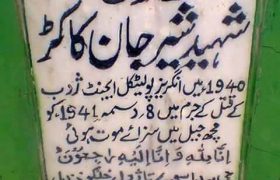 شہید شیر جان کاکڑ
1940ء میں انگریز پولیٹیکل ایجنٹ ژوب
کے قتل کے جرم میں 8 دسمبر 1941 کو
مچھ جیل میں سزائے موت ہوئی
اِنَّا لِلّٰهِ وَاِنَّا اِلَیْهِ رَاجِعُوْنَ